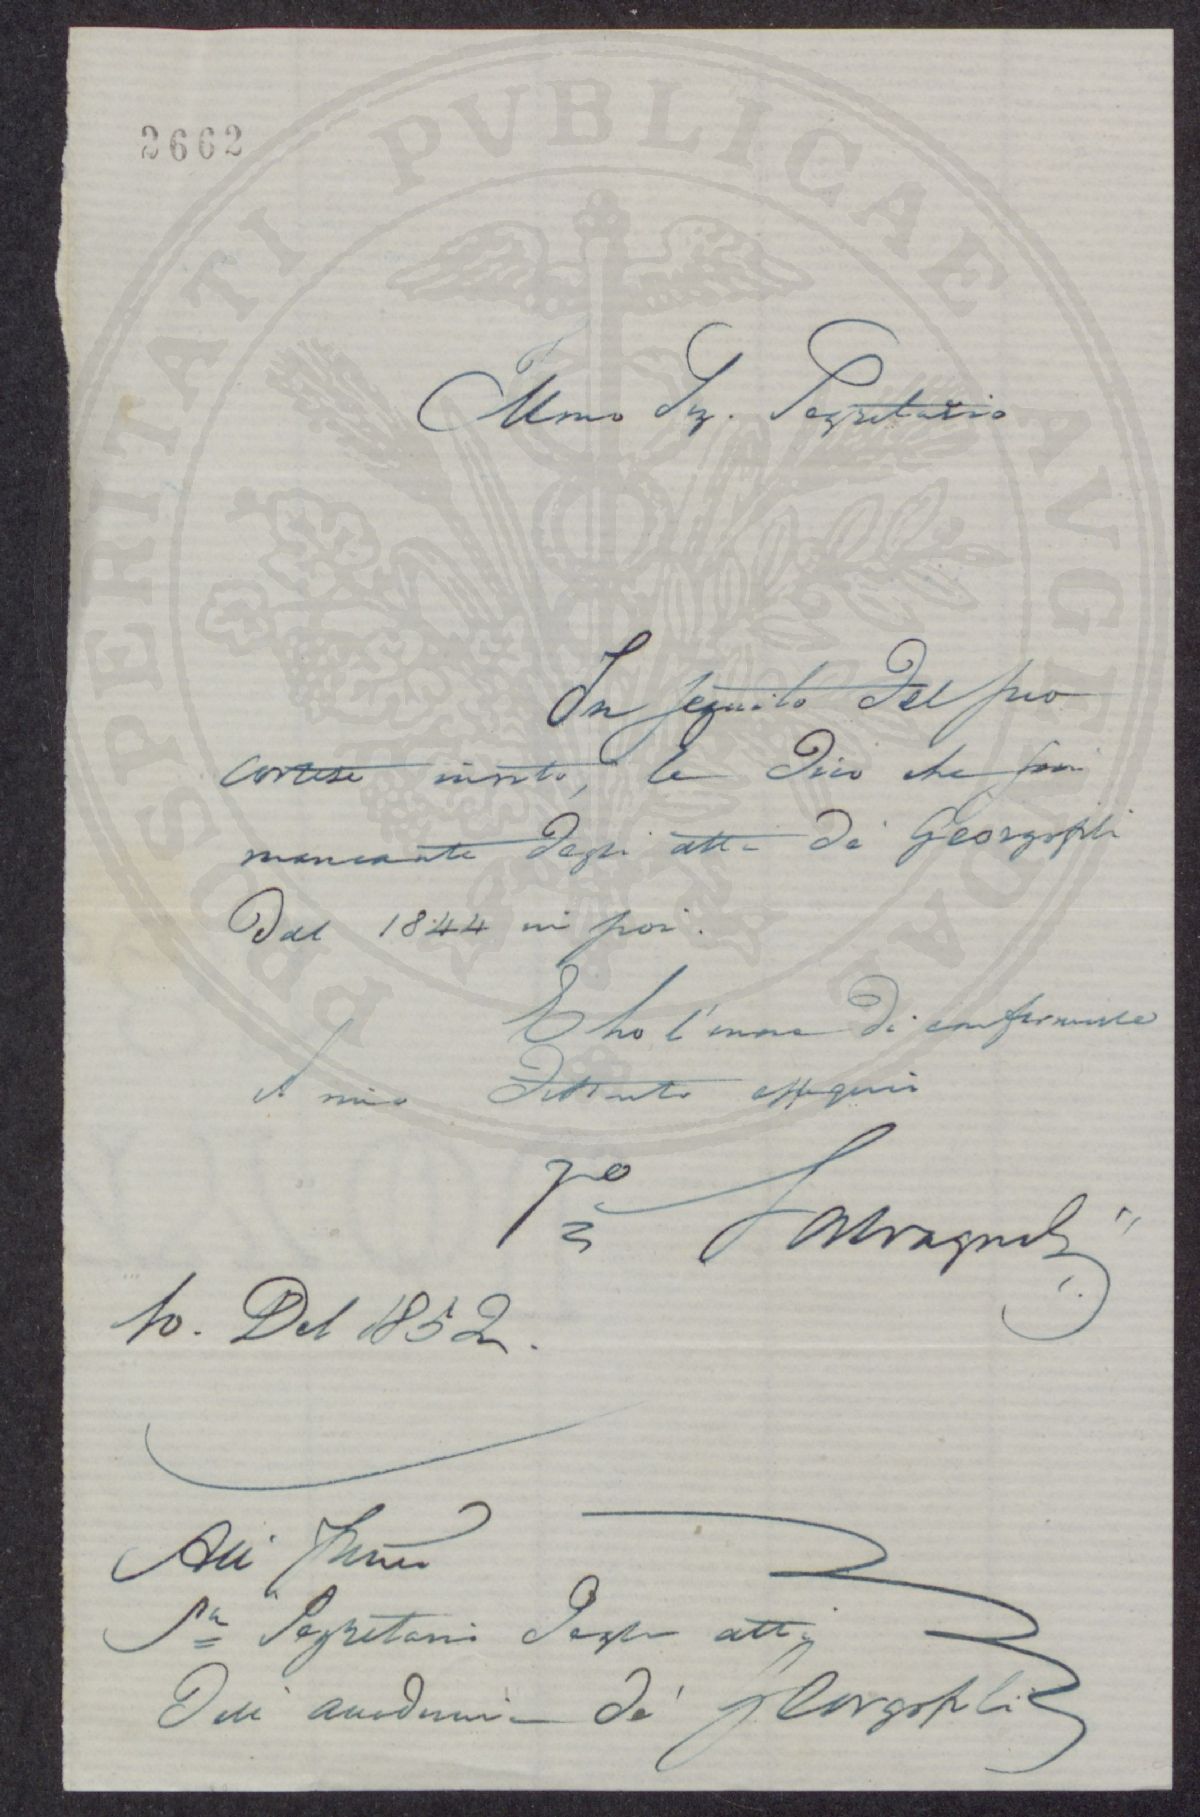 2662
PROSPERITATI PUBLICAE AUGENDAE
Illmo Sig. Segretario
In seguito del suo
cortese invito, le dico che son
mancante degli atti de' Georgofili
dal 1844 in poi.
E ho l'onore di confermarle
il mio distinto ossequio
Salvagnoli
10. Del 1852.
All' Illmo
Sr. Segretario degli atti
dell' accademia de' Georgofili